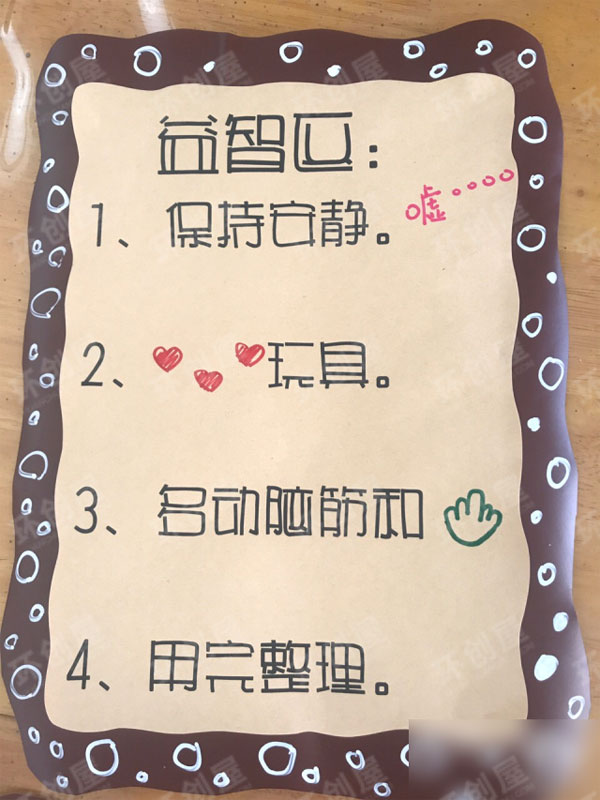 益智区：
1、保持安静。嘘。。。。
2、玩具。
3、多动脑筋和
4、用完整理。
环创屋